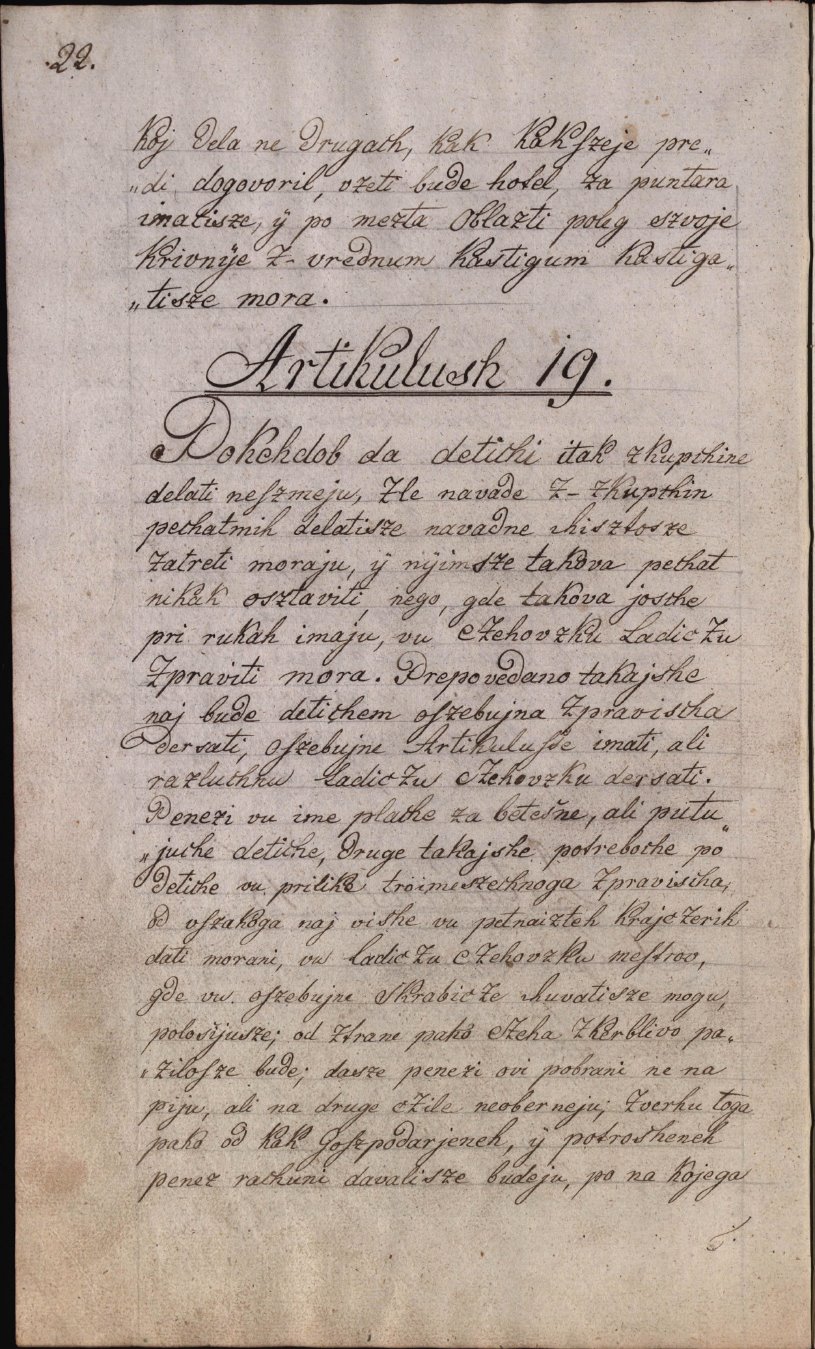 22.
Koj dela ne drugach, kak kakszeje pre„
„di dogovoril, vzeti bude hotel, za puntara
imatisze, ÿ po mezta Oblazti poleg szvoje
krivnÿe z-vrednum kastigum kastiga„
„tisze mora.
Artikulush 19.
Dokehdob da detichi itak zkupchine
delati neszmeju, zle navade z-zkupchin
pechatmih delatisze navadne chisztosze
zatreti moraju, ÿ nÿimsze takova pechat
nikak osztaviti, nego, gde takova joshe
pri rukah imaju, vu Czehovzku Ladiczu
zpraviti mora. Prepovedano takajshe
naj bude detichem oszebujna zpravischa
dersati, oszebujne Artikulushe imati, ali
razluchnu Ladiczu Czehovzku dersati.
Penezi vu ime plache za betešne, ali putu
„juche detiche, druge takajshe potreboche po
detiche vu prilike troimeszechnoga zpravischa,
od vszakoga naj vishe vu petnaizteh krajczerih
dati morani, vu ladiczu Czehovzku mestrov,
gde vu oszebujne skrabicze chuvatisze mogu,
polosijusze; od ztrane pako Czeha zkerblivo pa„
„zilosze bude; dasze penezi ovi pobrani ne na
piju, ali na druge czile neoberneju; zverhu toga
pako od kak goszpodarjeneh, ÿ potrosheneh
penez rachuni davatisze budeju, po na kojega